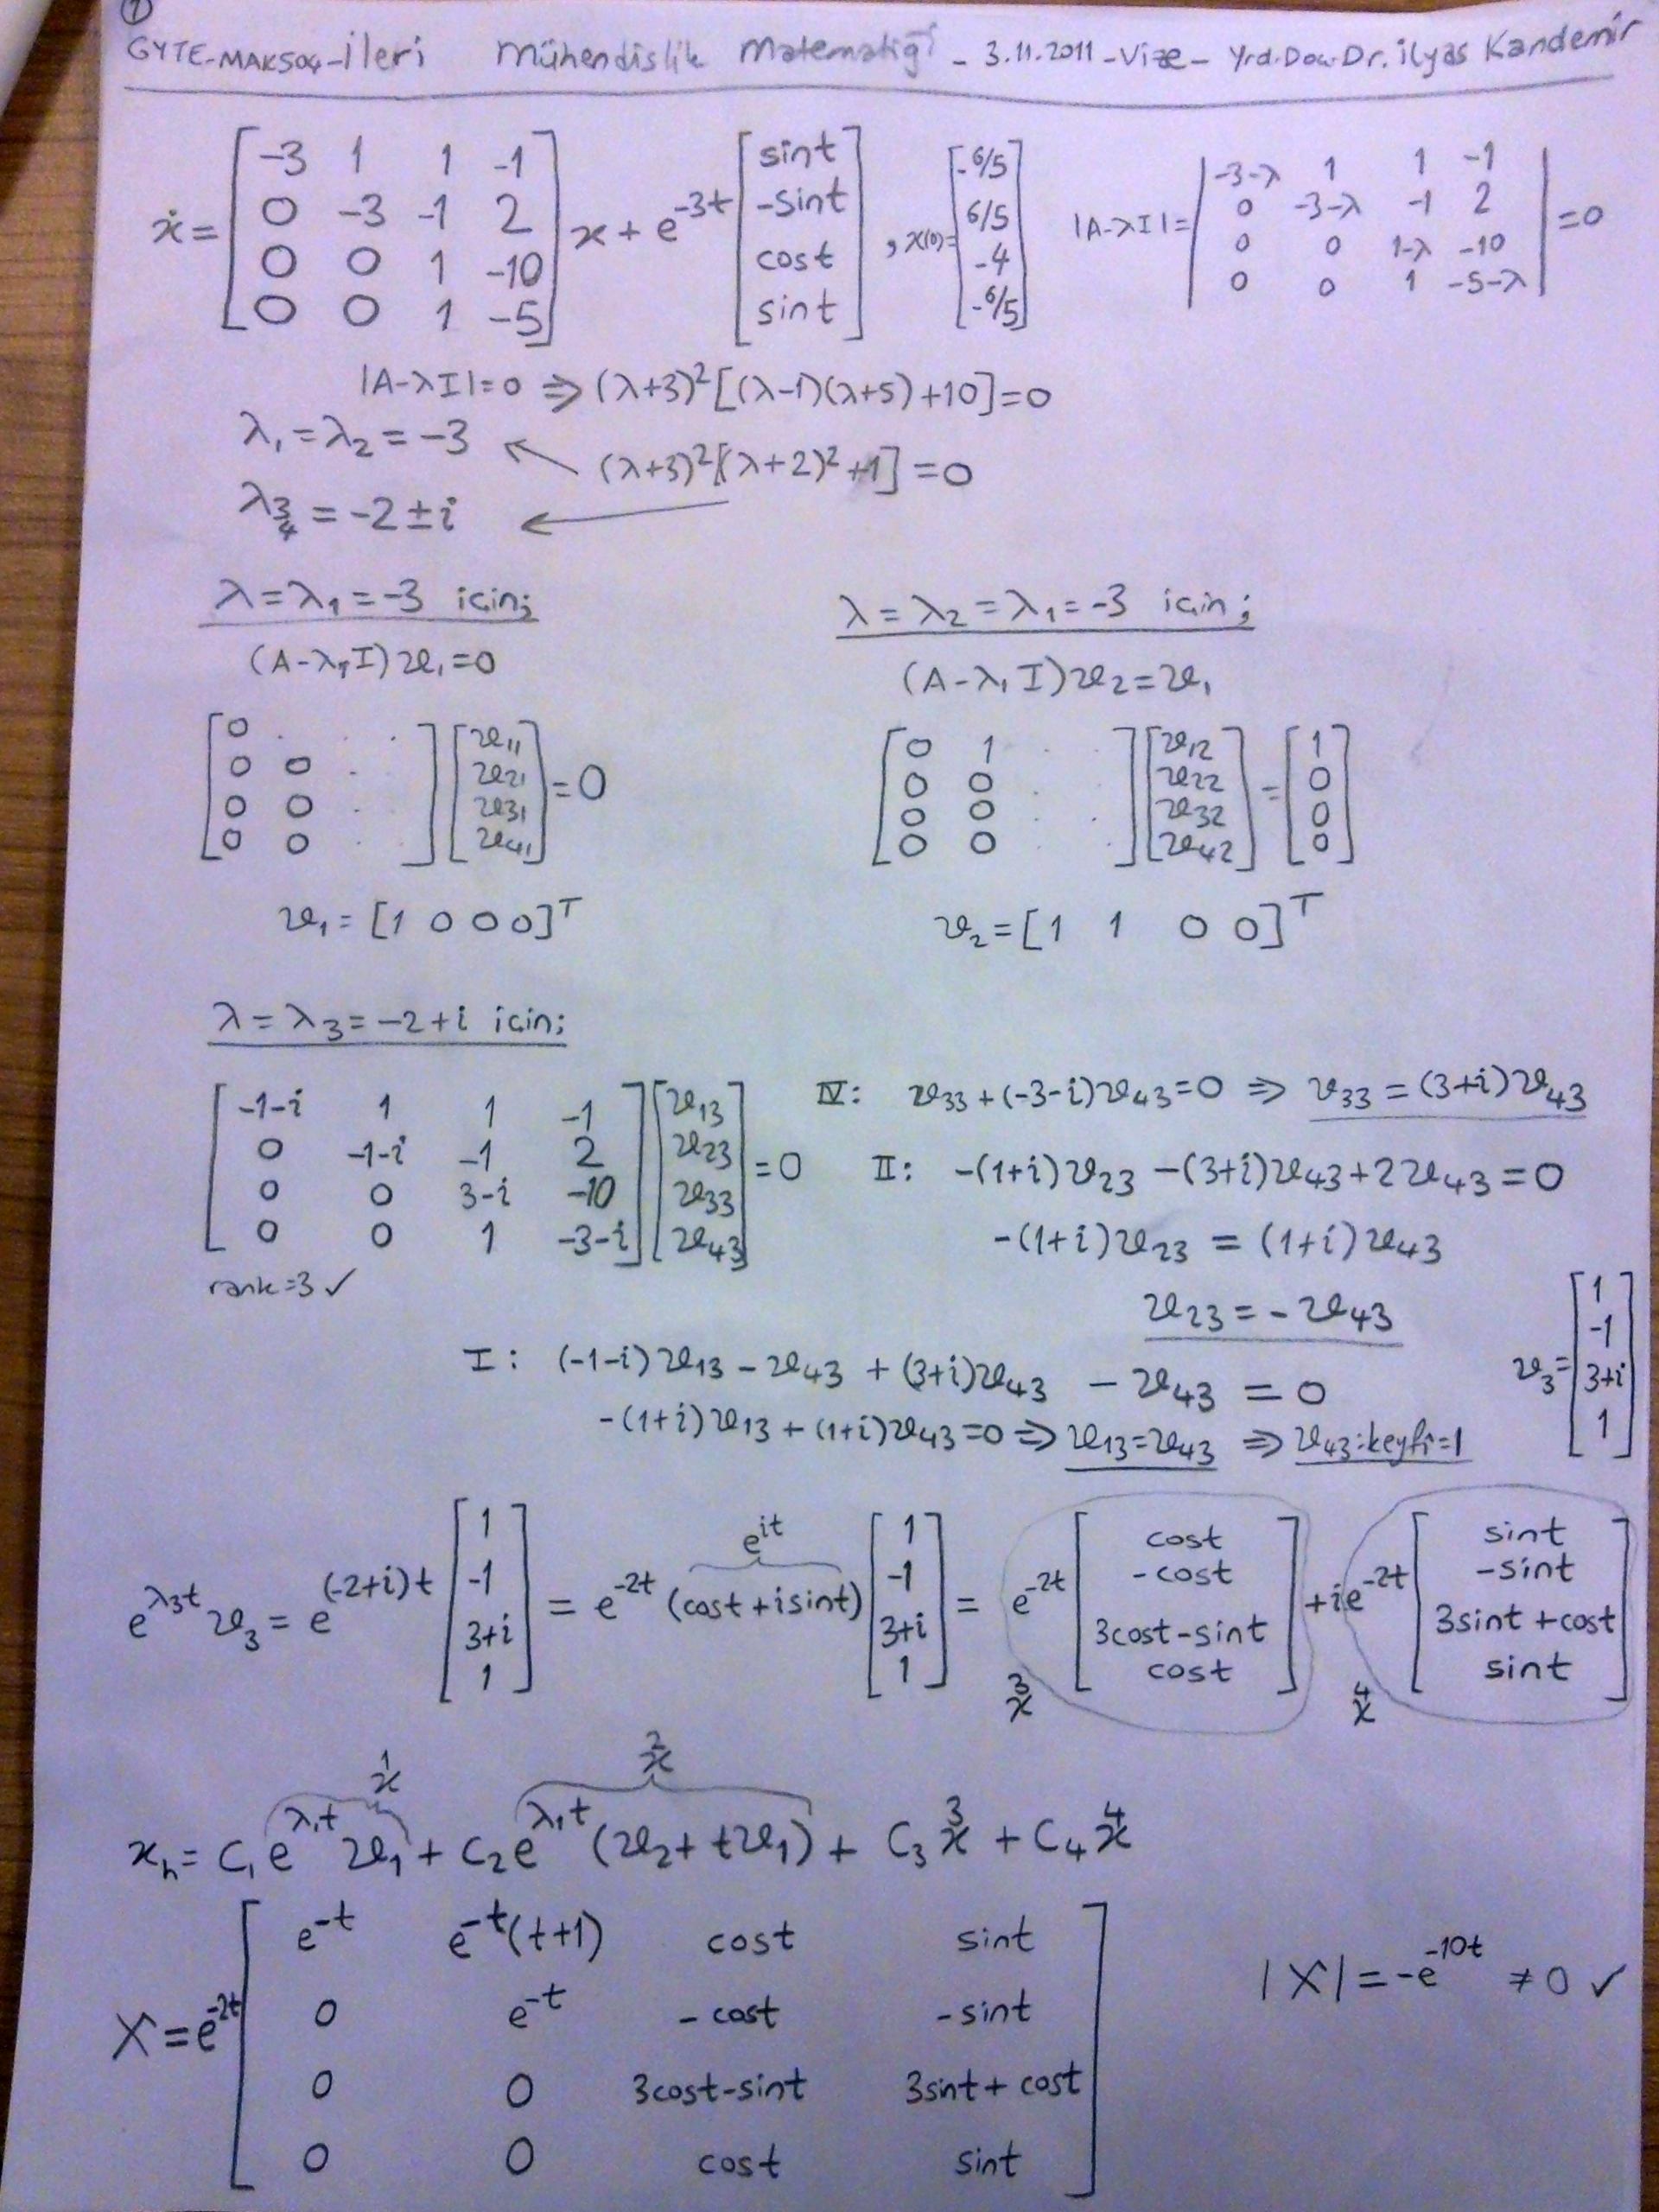 ①
GYTE-MAK504-İleri Mühendislik Matematiği - 3.11.2011 - Vize - Yrd.Doç.Dr. İlyas Kandemir
ẋ = [-3 1 1 -1; 0 -3 -1 2; 0 0 1 -10; 0 0 1 -5] x + e^{-3t} [sint; -sint; cost; sint], x(0) = [-6/5; 6/5; -4; -6/5]
|A-λI| = |-3-λ 1 1 -1; 0 -3-λ -1 2; 0 0 1-λ -10; 0 0 1 -5-λ| = 0
|A-λI|=0 ⇒ (λ+3)²[(λ-1)(λ+5)+10]=0
λ₁=λ₂=-3
(λ+3)²[(λ+2)²+1]=0
λ3/4 = -2±i
λ=λ₁=-3 için;
(A-λ₁I)v₁=0
[0 . . .; 0 0 .; 0 0 .; 0 0 .] [v₁₁; v₂₁; v₃₁; v₄₁] = 0
v₁=[1 0 0 0]ᵀ
λ=λ₂=λ₁=-3 için;
(A-λ₁I)v₂=v₁
[0 1 . .; 0 0 .; 0 0 . .; 0 0 . .] [v₁₂; v₂₂; v₃₂; v₄₂] = [1; 0; 0; 0]
v₂=[1 1 0 0]ᵀ
λ=λ₃=-2+i için:
[-1-i 1 1 -1; 0 -1-i -1 2; 0 0 3-i -10; 0 0 1 -3-i] [v₁₃; v₂₃; v₃₃; v₄₃] = 0
rank=3 ✓
IV: v₃₃+(-3-i)v₄₃=0 ⇒ v₃₃=(3+i)v₄₃
II: -(1+i)v₂₃-(3+i)v₄₃+2v₄₃=0
-(1+i)v₂₃=(1+i)v₄₃
v₂₃=-v₄₃
I: (-1-i)v₁₃-v₄₃+(3+i)v₄₃-v₄₃=0
-(1+i)v₁₃+(1+i)v₄₃=0 ⇒ v₁₃=v₄₃ ⇒ v₄₃:keyfi=1
v₃=[1; -1; 3+i; 1]
e^{λ₃t}v₃ = e^{(-2+i)t} [1; -1; 3+i; 1] = e^{-2t} (cost+isint) [1; -1; 3+i; 1] = e^{-2t} [cost; -cost; 3cost-sint; cost] + ie^{-2t} [sint; -sint; 3sint+cost; sint]
e^{it}
³x ⁴x
¹x ²x
x_h = c₁e^{λ₁t}v₁ + c₂e^{λ₁t}(v₂+tv₁) + c₃ ³x + c₄ ⁴x
X = e^{-2t} [e^{-t} e^{-t}(t+1) cost sint; 0 e^{-t} -cost -sint; 0 0 3cost-sint 3sint+cost; 0 0 cost sint]
|X| = -e^{-10t} ≠ 0 ✓